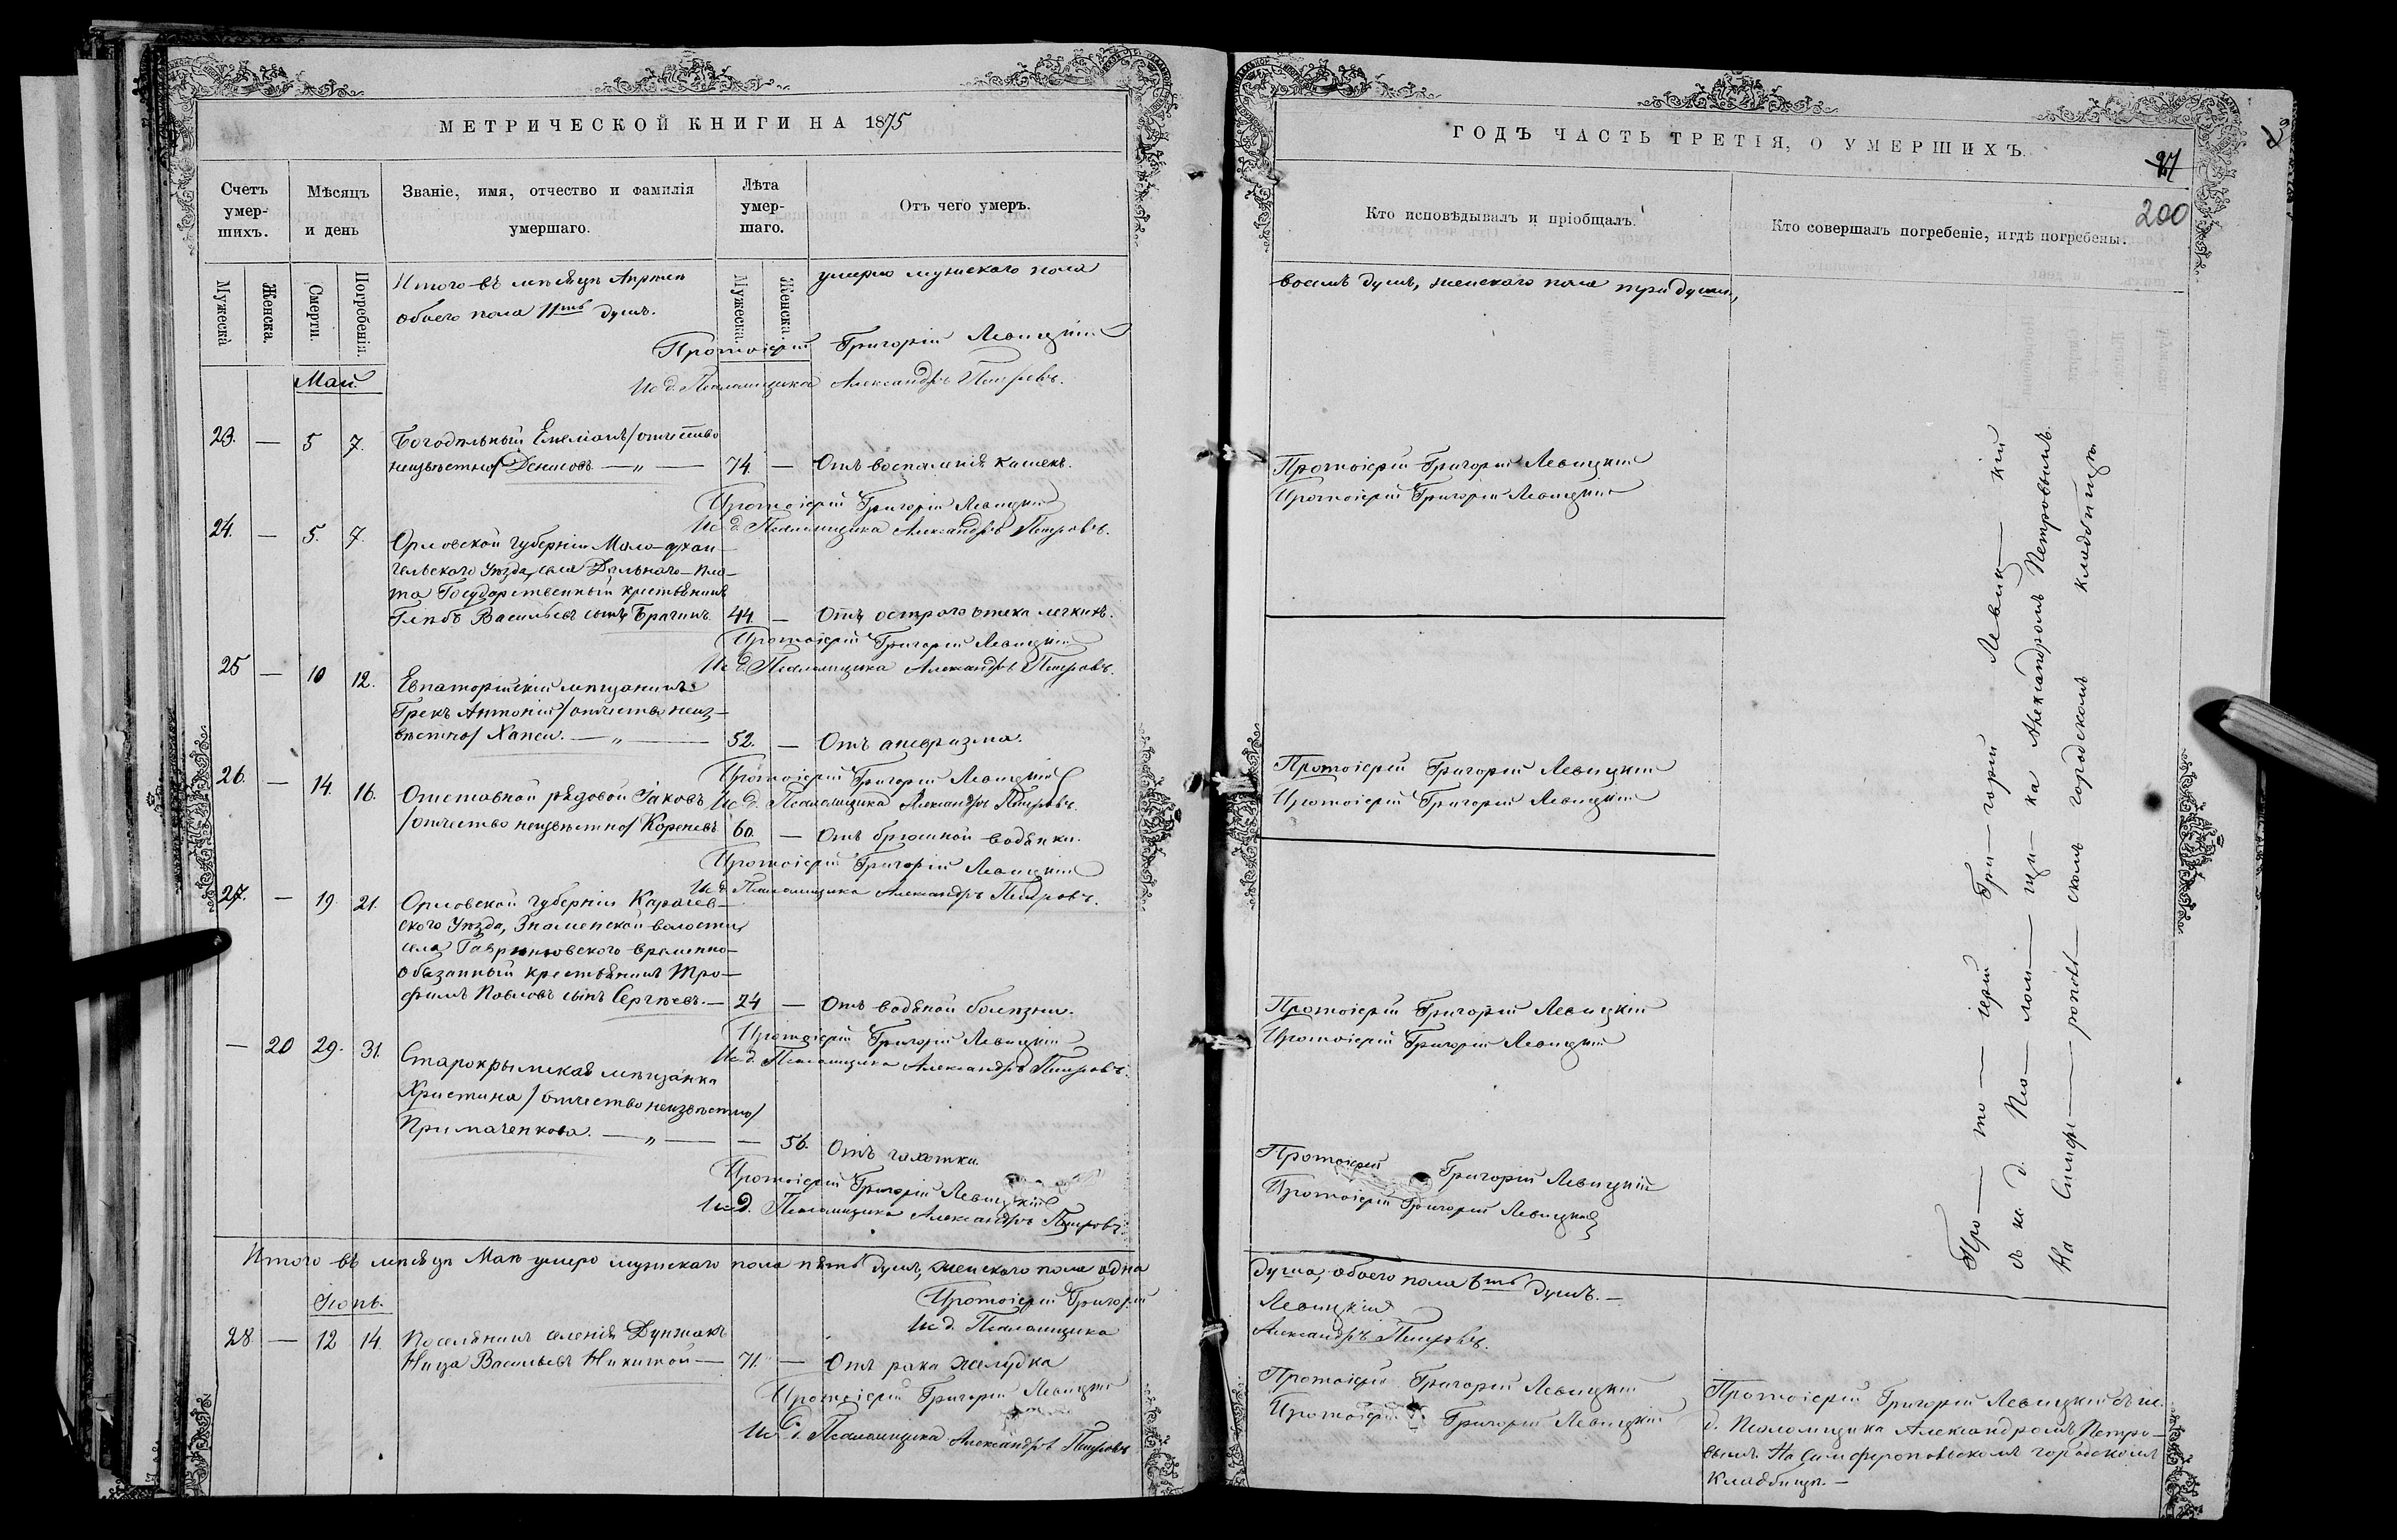 МЕТРИЧЕСКОЙ КНИГИ НА 1875
Счетъ умер-шихъ.
Мѣсяцъ и день
Званіе, имя, отчество и фамилія умершаго.
Лѣта умер-шаго.
Отъ чего умеръ.
Мужеска
Женска.
Смерти.
Погребенія.
Мужеска.
Женска.
Итого въ мѣсяцѣ Апрѣлѣ умерло мужескаго пола
обоего пола 11ть душъ.
Протоіерей Григорій Левицкій
Ис. д. Псаломщика Александръ Петровъ.
Май.
23. — 5 7. Богодѣльный Емеліанъ /отчество
неизвѣстно/ Денисовъ — „ — 74. — Отъ воспаленія кишекъ.
Протоіерей Григорій Левицкій
Ис. д. Псаломщика Александръ Петровъ.
24. — 5. 7. Орловской губерніи Мало-архан-
гельскаго Уѣзда, села Дальнаго-Кло-
та Государственный крестьянинъ
Глѣбъ Васильевъ сынъ Брагинъ. 44. — Отъ остраго отека легкихъ.
Протоіерей Григорій Левицкій
Ис. д. Псаломщика Александръ Петровъ.
25 — 10 12. Евпаторійскій мѣщанинъ
Грекъ Антоній /отчество неиз-
вѣстно/ Хапси. — „ — 52. — Отъ аневризма.
Протоіерей Григорій Левицкій
Ис. д. Псаломщика Александръ Петровъ.
26. — 14. 16. Отставной рядовой Іаковъ
/отчество неизвѣстно/ Кореневъ 60. — Отъ брюшной водянки.
Протоіерей Григорій Левицкій
Ис. д. Псаломщика Александръ Петровъ.
27. — 19. 21. Орловской губерніи Карачев-
скаго Уѣзда, Знаменской волости
села
временно-
обязанный крестьянинъ Тро-
фимъ Павловъ сынъ Сергѣевъ. — 24 — Отъ водяной болѣзни.
Протоіерей Григорій Левицкій
Ис. д. Псаломщика Александръ Петровъ.
— 20 29. 31. Старокрымская мѣщанка
Христина /отчество неизвѣстно/
Примаченкова. — „ — — 56. Отъ чахотки.
Протоіерей Григорій Левицкій
Ис. д. Псаломщика Александръ Петровъ.
Итого въ мѣсяцѣ Маѣ умерло мужескаго пола пять душъ, женскаго пола одна
Протоіерей Григорій
Ис. д. Псаломщика
Іюнь.
28 — 12 14. Поселянинъ селенія
Васильевъ Никитой — 71. — Отъ рака желудка
Протоіерей Григорій Левицкій
Ис. д. Псаломщика Александръ Петровъ
ГОДЪ ЧАСТЬ ТРЕТІЯ, О УМЕРШИХЪ.
200
Кто исповѣдывалъ и пріобщалъ.
Кто совершалъ погребеніе, и гдѣ погребены.
восемь душъ, женскаго пола три души,
Протоіерей Григорій Левицкій
Протоіерей Григорій Левицкій
Протоіерей Григорій Левицкій
Протоіерей Григорій Левицкій
Протоіерей Григорій Левицкій
Протоіерей Григорій Левицкій
Протоіерей Григорій Левицкій
Протоіерей Григорій Левицкій
Про — то — іерей Гри — горій Левиц — кій
съ ис. д. Пса — лом — щи — ка Александромъ Петровымъ.
На Симфе — ропольс — скомъ городскомъ кладбищѣ
душа, обоего пола 6ть душъ. —
Левицкій
Александръ Петровъ.
Протоіерей Григорій Левицкій
Протоіерей Григорій Левицкій
Протоіерей Григорій Левицкій съ ис.
д. Псаломщика Александромъ Петро-
вымъ. На Симферопольскомъ городскомъ
кладбищѣ. —